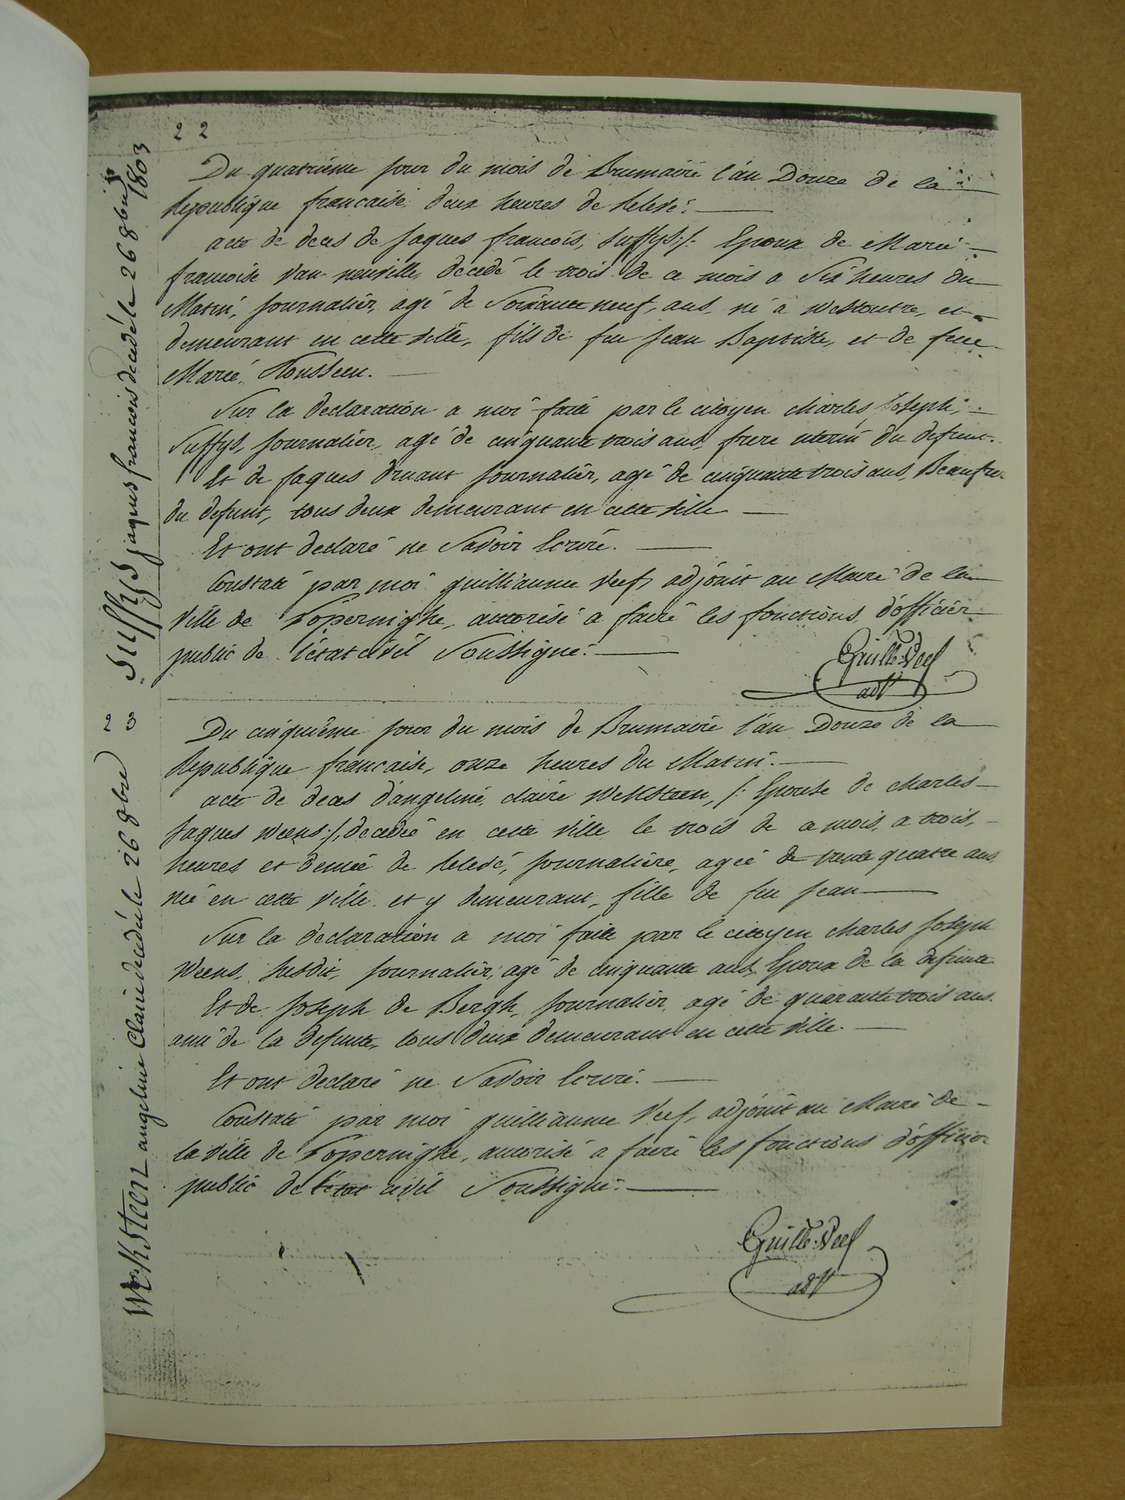 22
Du quatrième jour du mois de Brumaire l'an Douze de la
Republique francaise deux heures de relevé.
acte de deces de Jaques francois, Suffys /: Epoux de Marie
francoise van neuville, decedé le trois de ce mois a Six heures du
Matin, journalier, agé de Soixante neuf, ans, né à Westoutre, et
demeurant en cette ville, fils de feu Jean Baptiste, et de feue
Marie
Sur la declaration a moi faite par le citoyen Charles Joseph
Suffys, journalier, agé de cinquante trois ans, frere uterin du defunt.
Et de Jaques druant journalier, agé de cinquante trois ans, Beaufrere
du defunt, tous deux demeurant en cette ville
Et ont declaré ne Savoir Ecrire.
Constaté par moi guilliaume Veef, adjoint au Maire de la
Ville de Poperinghe, autorisé a faire les fonctions d'officier
public de l'état civil Soussigné.
Guille Veef
adt
Suffys jaques francois decedé le 26 8bre 1803
23
Du cinquième jour du mois de Brumaire l'an Douze de la
Republique francaise, onze heures du Matin.
acte de deces d'angeline claire Weksteen, /: Epouse de Charles
Jaques Weens :/, decedée en cette ville le trois de ce mois, a trois,
heures et demie de relevé, journalière, agée de trente quatre ans
née en cette ville et y demeurant, fille de feu Jean
Sur la declaration a moi faite par le citoyen Charles Joseph
Weens, Susdit, journalier, agé de cinquante ans, Epoux de la defunte
Et de Joseph de Bergh, journalier, agé de quarante trois ans
ami de la defunte, tous deux demeurant en cette ville.
Et ont declaré ne Savoir Ecrire.
Constaté par moi guilliaume Veef, adjoint au Maire de
la ville de Poperinghe, autorisé a faire les fonctions d'officier
public de l'état civil Soussigné.
Guille Veef
adt
Weksteen angeline Claire decedé le 26 8bre